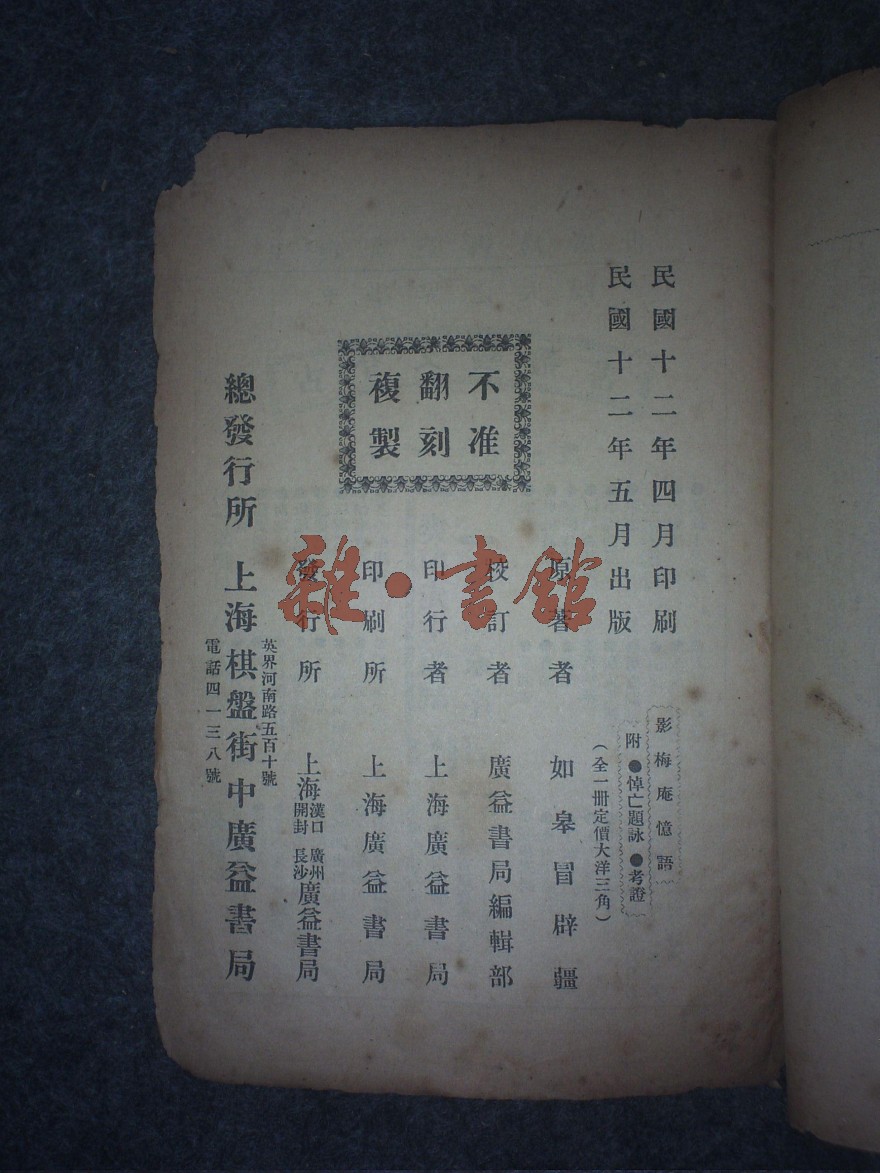 民國十二年四月印刷
民國十二年五月出版
影梅庵憶語
附●悼亡題詠●考證
(全一册定價大洋三角)
原著者 如皋冒辟疆
校訂者 廣益書局編輯部
印行者 上海廣益書局
印刷所 上海廣益書局
發行所 上海漢口廣州開封長沙廣益書局
不准
翻刻
複製
英界河南路五百十號
總發行所 上海棋盤街中廣益書局
電話四一三八號
雜·書館